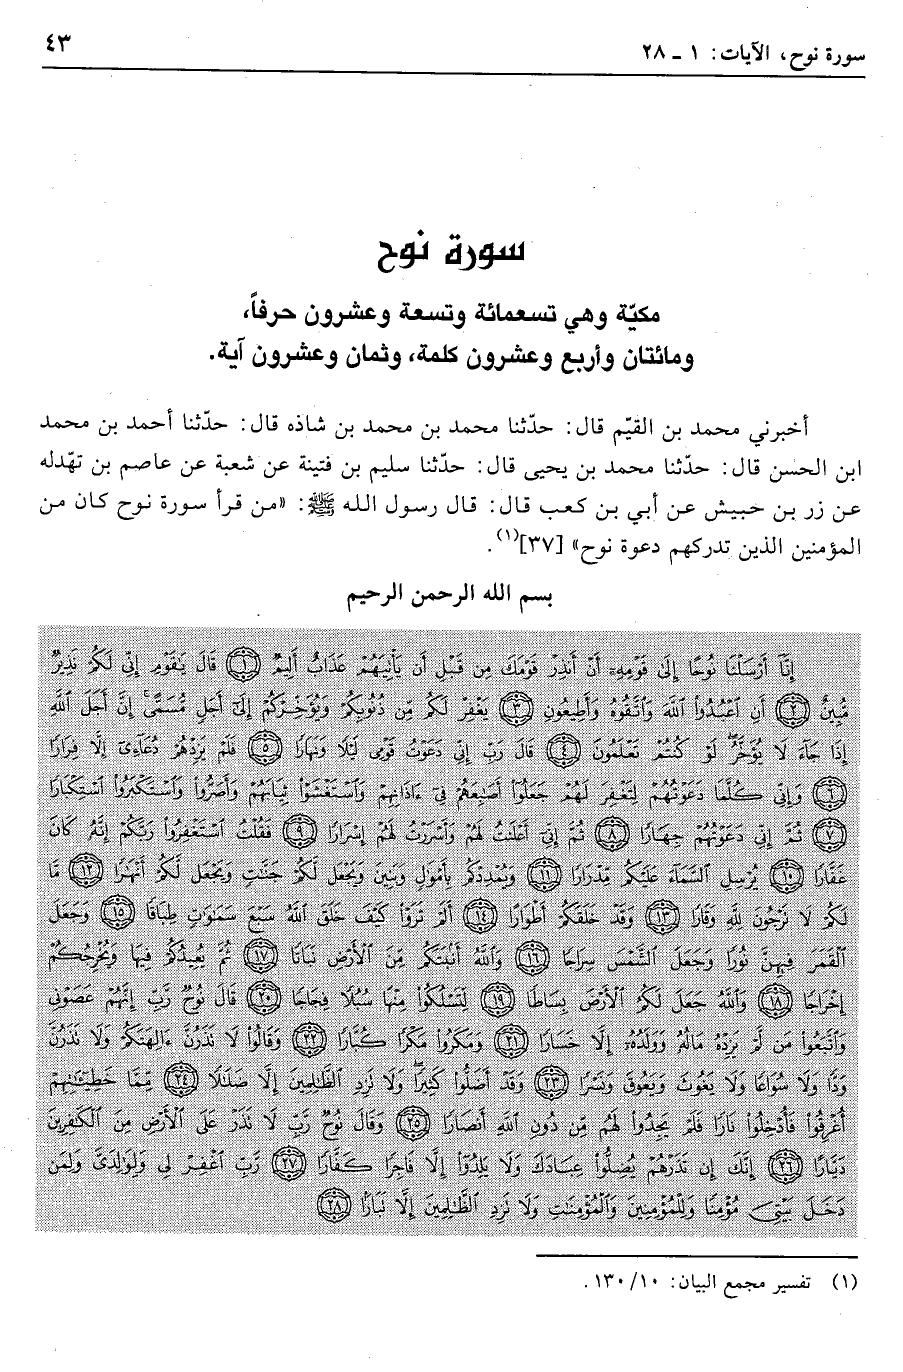 سورة نوح، الآيات: ١ ـ ٢٨
٤٣
سورة نوح
مكيّة وهي تسعمائة وتسعة وعشرون حرفاً،
ومائتان وأربع وعشرون كلمة، وثمان وعشرون آية.
أخبرني محمد بن القيّم قال: حدّثنا محمد بن محمد بن شاذه قال: حدّثنا أحمد بن محمد
ابن الحسن قال: حدّثنا محمد بن يحيى قال: حدّثنا سليم بن فتينة عن شعبة عن عاصم بن تهدله
عن زر بن حبيش عن أبي بن كعب قال: قال رسول الله ﷺ: «من قرأ سورة نوح كان من
المؤمنين الذين تدركهم دعوة نوح» [٣٧](١).
بسم الله الرحمن الرحيم
إِنَّا أَرْسَلْنَا نُوحًا إِلَىٰ قَوْمِهِۦ أَنْ أَنذِرْ قَوْمَكَ مِن قَبْلِ أَن يَأْتِيَهُمْ عَذَابٌ أَلِيمٌ ﴿١﴾ قَالَ يَٰقَوْمِ إِنِّي لَكُمْ نَذِيرٌ
مُّبِينٌ ﴿٢﴾ أَنِ ٱعْبُدُوا۟ ٱللَّهَ وَٱتَّقُوهُ وَأَطِيعُونِ ﴿٣﴾ يَغْفِرْ لَكُم مِّن ذُنُوبِكُمْ وَيُؤَخِّرْكُمْ إِلَىٰٓ أَجَلٍ مُّسَمًّى ۚ إِنَّ أَجَلَ ٱللَّهِ
إِذَا جَآءَ لَا يُؤَخَّرُ ۖ لَوْ كُنتُمْ تَعْلَمُونَ ﴿٤﴾ قَالَ رَبِّ إِنِّي دَعَوْتُ قَوْمِي لَيْلًا وَنَهَارًا ﴿٥﴾ فَلَمْ يَزِدْهُمْ دُعَآءِىٓ إِلَّا فِرَارًا
﴿٦﴾ وَإِنِّي كُلَّمَا دَعَوْتُهُمْ لِتَغْفِرَ لَهُمْ جَعَلُوٓا۟ أَصَٰبِعَهُمْ فِىٓ ءَاذَانِهِمْ وَٱسْتَغْشَوْا۟ ثِيَابَهُمْ وَأَصَرُّوا۟ وَٱسْتَكْبَرُوا۟ ٱسْتِكْبَارًا
﴿٧﴾ ثُمَّ إِنِّي دَعَوْتُهُمْ جِهَارًا ﴿٨﴾ ثُمَّ إِنِّىٓ أَعْلَنتُ لَهُمْ وَأَسْرَرْتُ لَهُمْ إِسْرَارًا ﴿٩﴾ فَقُلْتُ ٱسْتَغْفِرُوا۟ رَبَّكُمْ إِنَّهُۥ كَانَ
غَفَّارًا ﴿١٠﴾ يُرْسِلِ ٱلسَّمَآءَ عَلَيْكُم مِّدْرَارًا ﴿١١﴾ وَيُمْدِدْكُم بِأَمْوَٰلٍ وَبَنِينَ وَيَجْعَل لَّكُمْ جَنَّٰتٍ وَيَجْعَل لَّكُمْ أَنْهَٰرًا ﴿١٢﴾ مَّا
لَكُمْ لَا تَرْجُونَ لِلَّهِ وَقَارًا ﴿١٣﴾ وَقَدْ خَلَقَكُمْ أَطْوَارًا ﴿١٤﴾ أَلَمْ تَرَوْا۟ كَيْفَ خَلَقَ ٱللَّهُ سَبْعَ سَمَٰوَٰتٍ طِبَاقًا ﴿١٥﴾ وَجَعَلَ
ٱلْقَمَرَ فِيهِنَّ نُورًا وَجَعَلَ ٱلشَّمْسَ سِرَاجًا ﴿١٦﴾ وَٱللَّهُ أَنۢبَتَكُم مِّنَ ٱلْأَرْضِ نَبَاتًا ﴿١٧﴾ ثُمَّ يُعِيدُكُمْ فِيهَا وَيُخْرِجُكُمْ
إِخْرَاجًا ﴿١٨﴾ وَٱللَّهُ جَعَلَ لَكُمُ ٱلْأَرْضَ بِسَاطًا ﴿١٩﴾ لِّتَسْلُكُوا۟ مِنْهَا سُبُلًا فِجَاجًا ﴿٢٠﴾ قَالَ نُوحٌ رَّبِّ إِنَّهُمْ عَصَوْنِي
وَٱتَّبَعُوا۟ مَن لَّمْ يَزِدْهُ مَالُهُۥ وَوَلَدُهُۥٓ إِلَّا خَسَارًا ﴿٢١﴾ وَمَكَرُوا۟ مَكْرًا كُبَّارًا ﴿٢٢﴾ وَقَالُوا۟ لَا تَذَرُنَّ ءَالِهَتَكُمْ وَلَا تَذَرُنَّ
وَدًّا وَلَا سُوَاعًا وَلَا يَغُوثَ وَيَعُوقَ وَنَسْرًا ﴿٢٣﴾ وَقَدْ أَضَلُّوا۟ كَثِيرًا ۖ وَلَا تَزِدِ ٱلظَّٰلِمِينَ إِلَّا ضَلَٰلًا ﴿٢٤﴾ مِّمَّا خَطِيٓـَٰٔتِهِمْ
أُغْرِقُوا۟ فَأُدْخِلُوا۟ نَارًا فَلَمْ يَجِدُوا۟ لَهُم مِّن دُونِ ٱللَّهِ أَنصَارًا ﴿٢٥﴾ وَقَالَ نُوحٌ رَّبِّ لَا تَذَرْ عَلَى ٱلْأَرْضِ مِنَ ٱلْكَٰفِرِينَ
دَيَّارًا ﴿٢٦﴾ إِنَّكَ إِن تَذَرْهُمْ يُضِلُّوا۟ عِبَادَكَ وَلَا يَلِدُوٓا۟ إِلَّا فَاجِرًا كَفَّارًا ﴿٢٧﴾ رَّبِّ ٱغْفِرْ لِي وَلِوَٰلِدَىَّ وَلِمَن
دَخَلَ بَيْتِىَ مُؤْمِنًا وَلِلْمُؤْمِنِينَ وَٱلْمُؤْمِنَٰتِ وَلَا تَزِدِ ٱلظَّٰلِمِينَ إِلَّا تَبَارًا ﴿٢٨﴾
(١) تفسير مجمع البيان: ١٣٠/١٠.